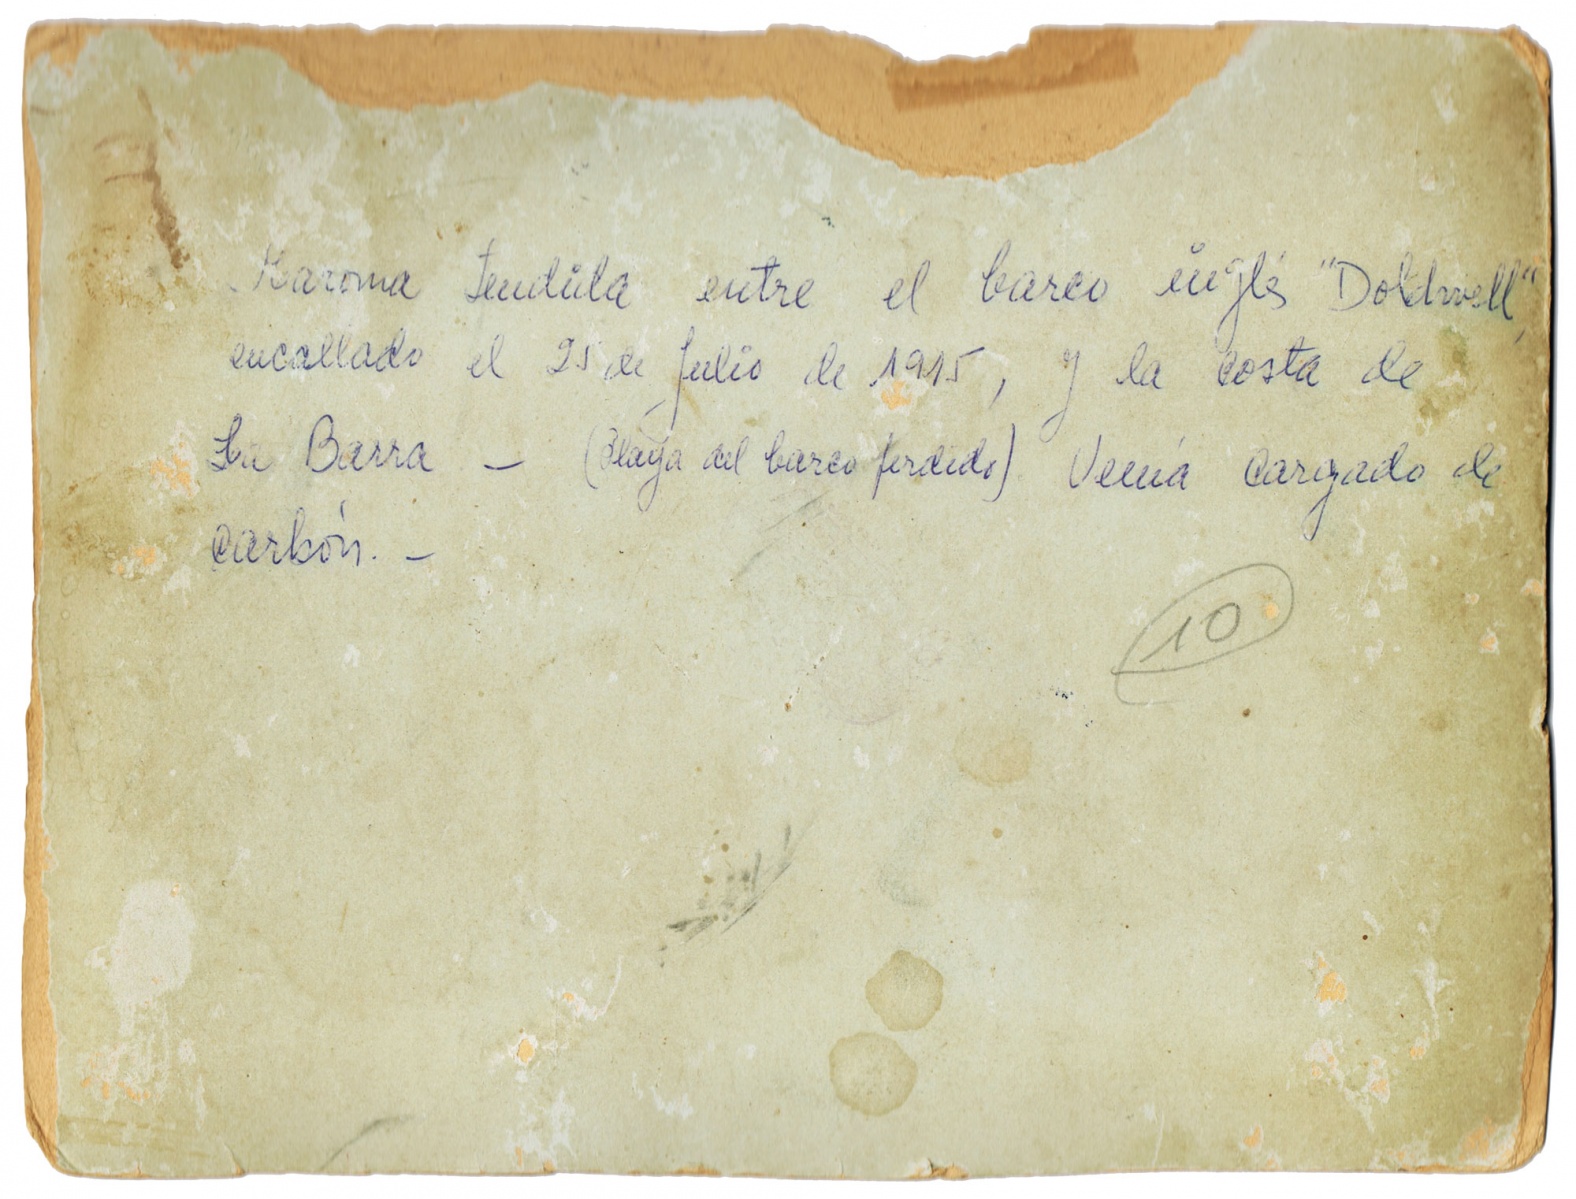 Maroma tendida entre el barco inglés "Doldwell",
encallado el 25 de julio de 1915, y la costa de
La Barra - (Playa del barco perdido) Venía cargado de
carbón. -
10